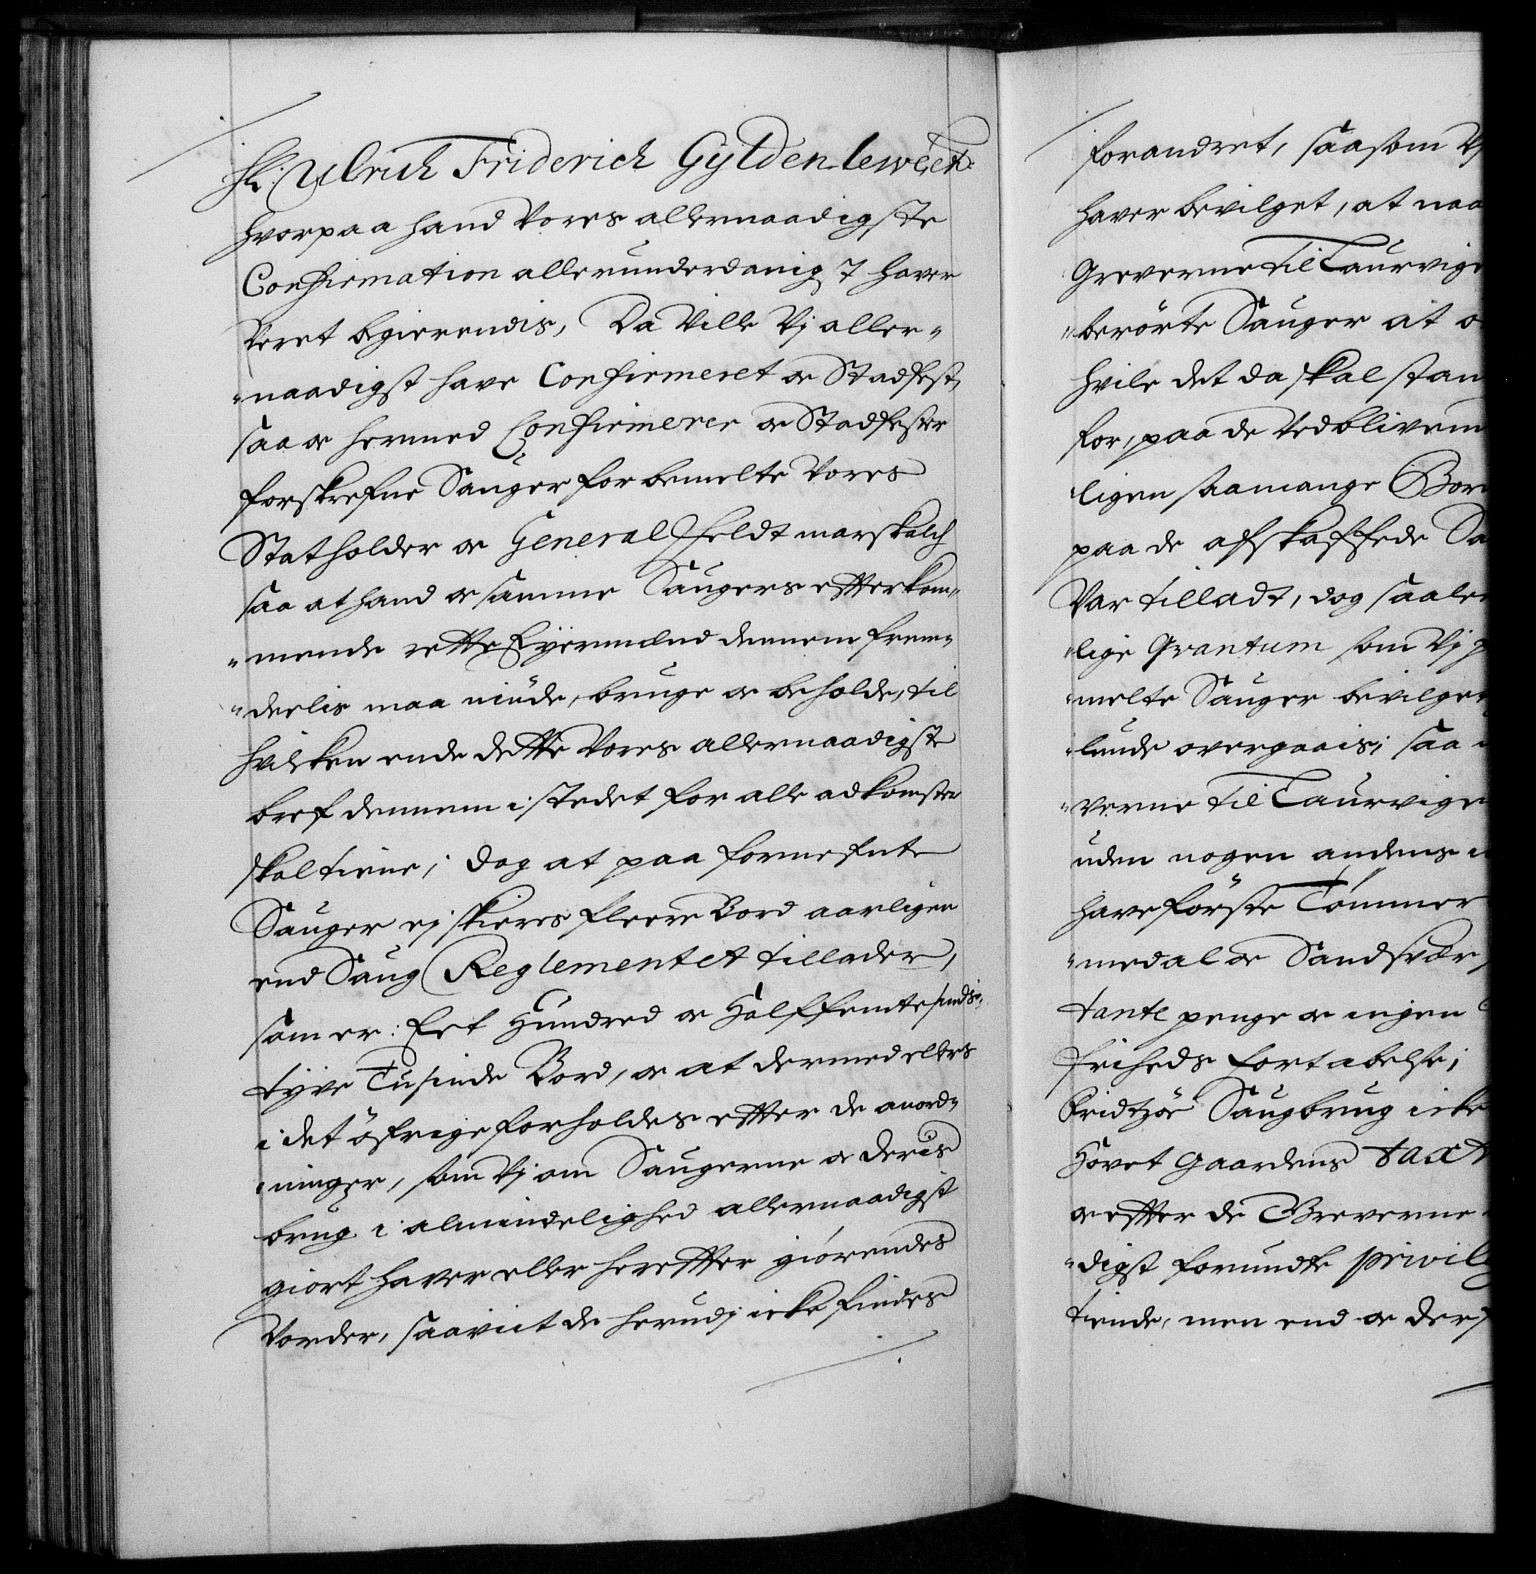 Hr: Ulrich Friderich Gyldenlewe etc:
hvorpaa hand Vores allernaadigste
Confirmation allerunderdanigst haver
Veret begierendis, Da Ville Vj aller„
„naadigst have Confirmeret oc Stadfest,
saa oc hermed Confirmerer oc Stadfester
forskrefne Sauger for bemelte Vores
Statholder oc General Feldtmarskalch
saa at hand oc samme Saugers efterkom„
„mende rette Eyermænd dennem frem„
„deelis maa niude, bruge oc beholde, til
hvilken ende dette Vores allernaadigste
bref dennem i stedet for alle adkomster
skal tiene; Dog at paa fornefnte
Sauger ej skieres fleere Bord aarligen
end Saug Reglementet tillader,
som er: Eet Hundred oc Halffemtesinds„
tyve Tusinde Bord, oc at dermed elles
i det öfrige forholdes efter de anord„
„ninger, som Vj om Saugerne oc deris
brug i almindelighed allernaadigst
giort haver eller herefter giörendes
Vorder, saaviit de herudj icke findes
forandret, saasom Vj
haver bevilget, at naa
Greverne til Laurvige
„berörte Sauger at
hvile det da skal staa
for, paa de Vedblivem
ligen saamange Bor
paa de afskaffede Sa
Var tilladt, dog saale
„lige Qvantum som Vj
„melte Sauger bevilget
„lunde overgaais; saa
„verne til Laurvige
uden nogen andens
have förste Tömmer
„medal oc Sandsvær
tante penge oc ingen
friheds fortabelse;
Fridtzöe Saugbrug icke
Hovet Gaardens taxt
oc efter de Greverne
„digst forundte privile
tiende, men end oc ders